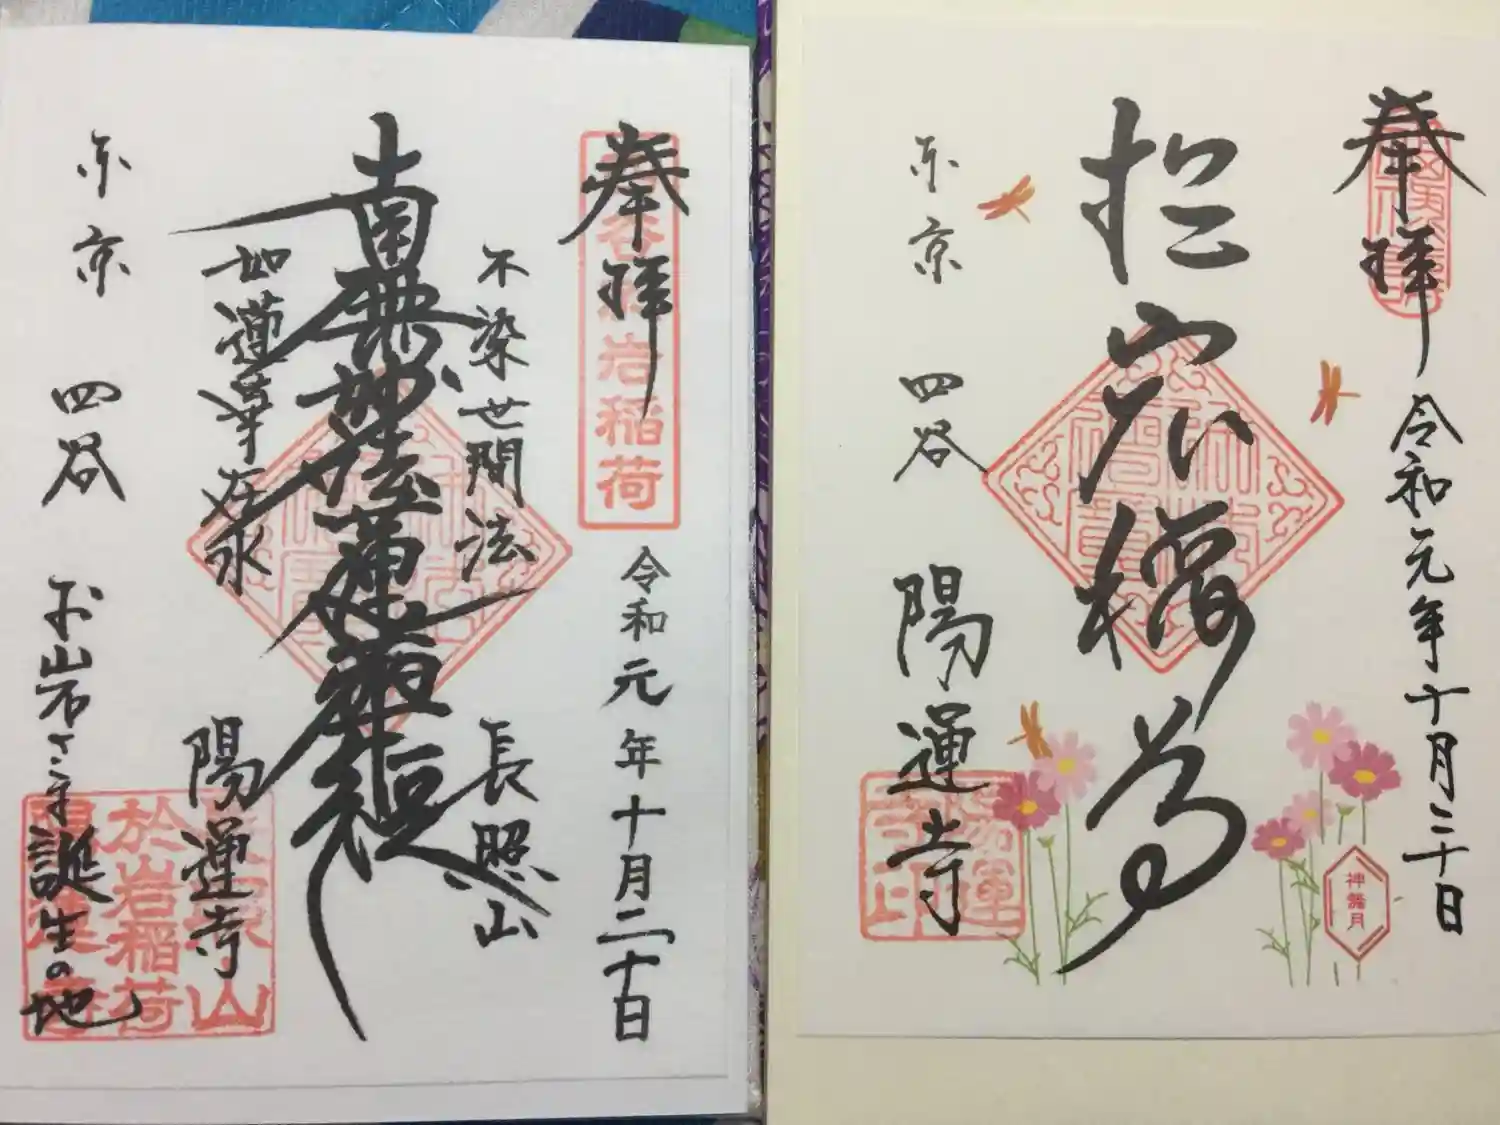 奉拝
四谷於岩稲荷
令和元年十月二十日
不染世間法
長照山
南無妙法蓮華経
如蓮華在水
陽運寺
東京 四谷
お岩さま誕生の地
於岩稲荷
奉拝
令和元年十月二十日
於岩稲荷
神無月
東京 四谷
陽運寺
陽運寺印